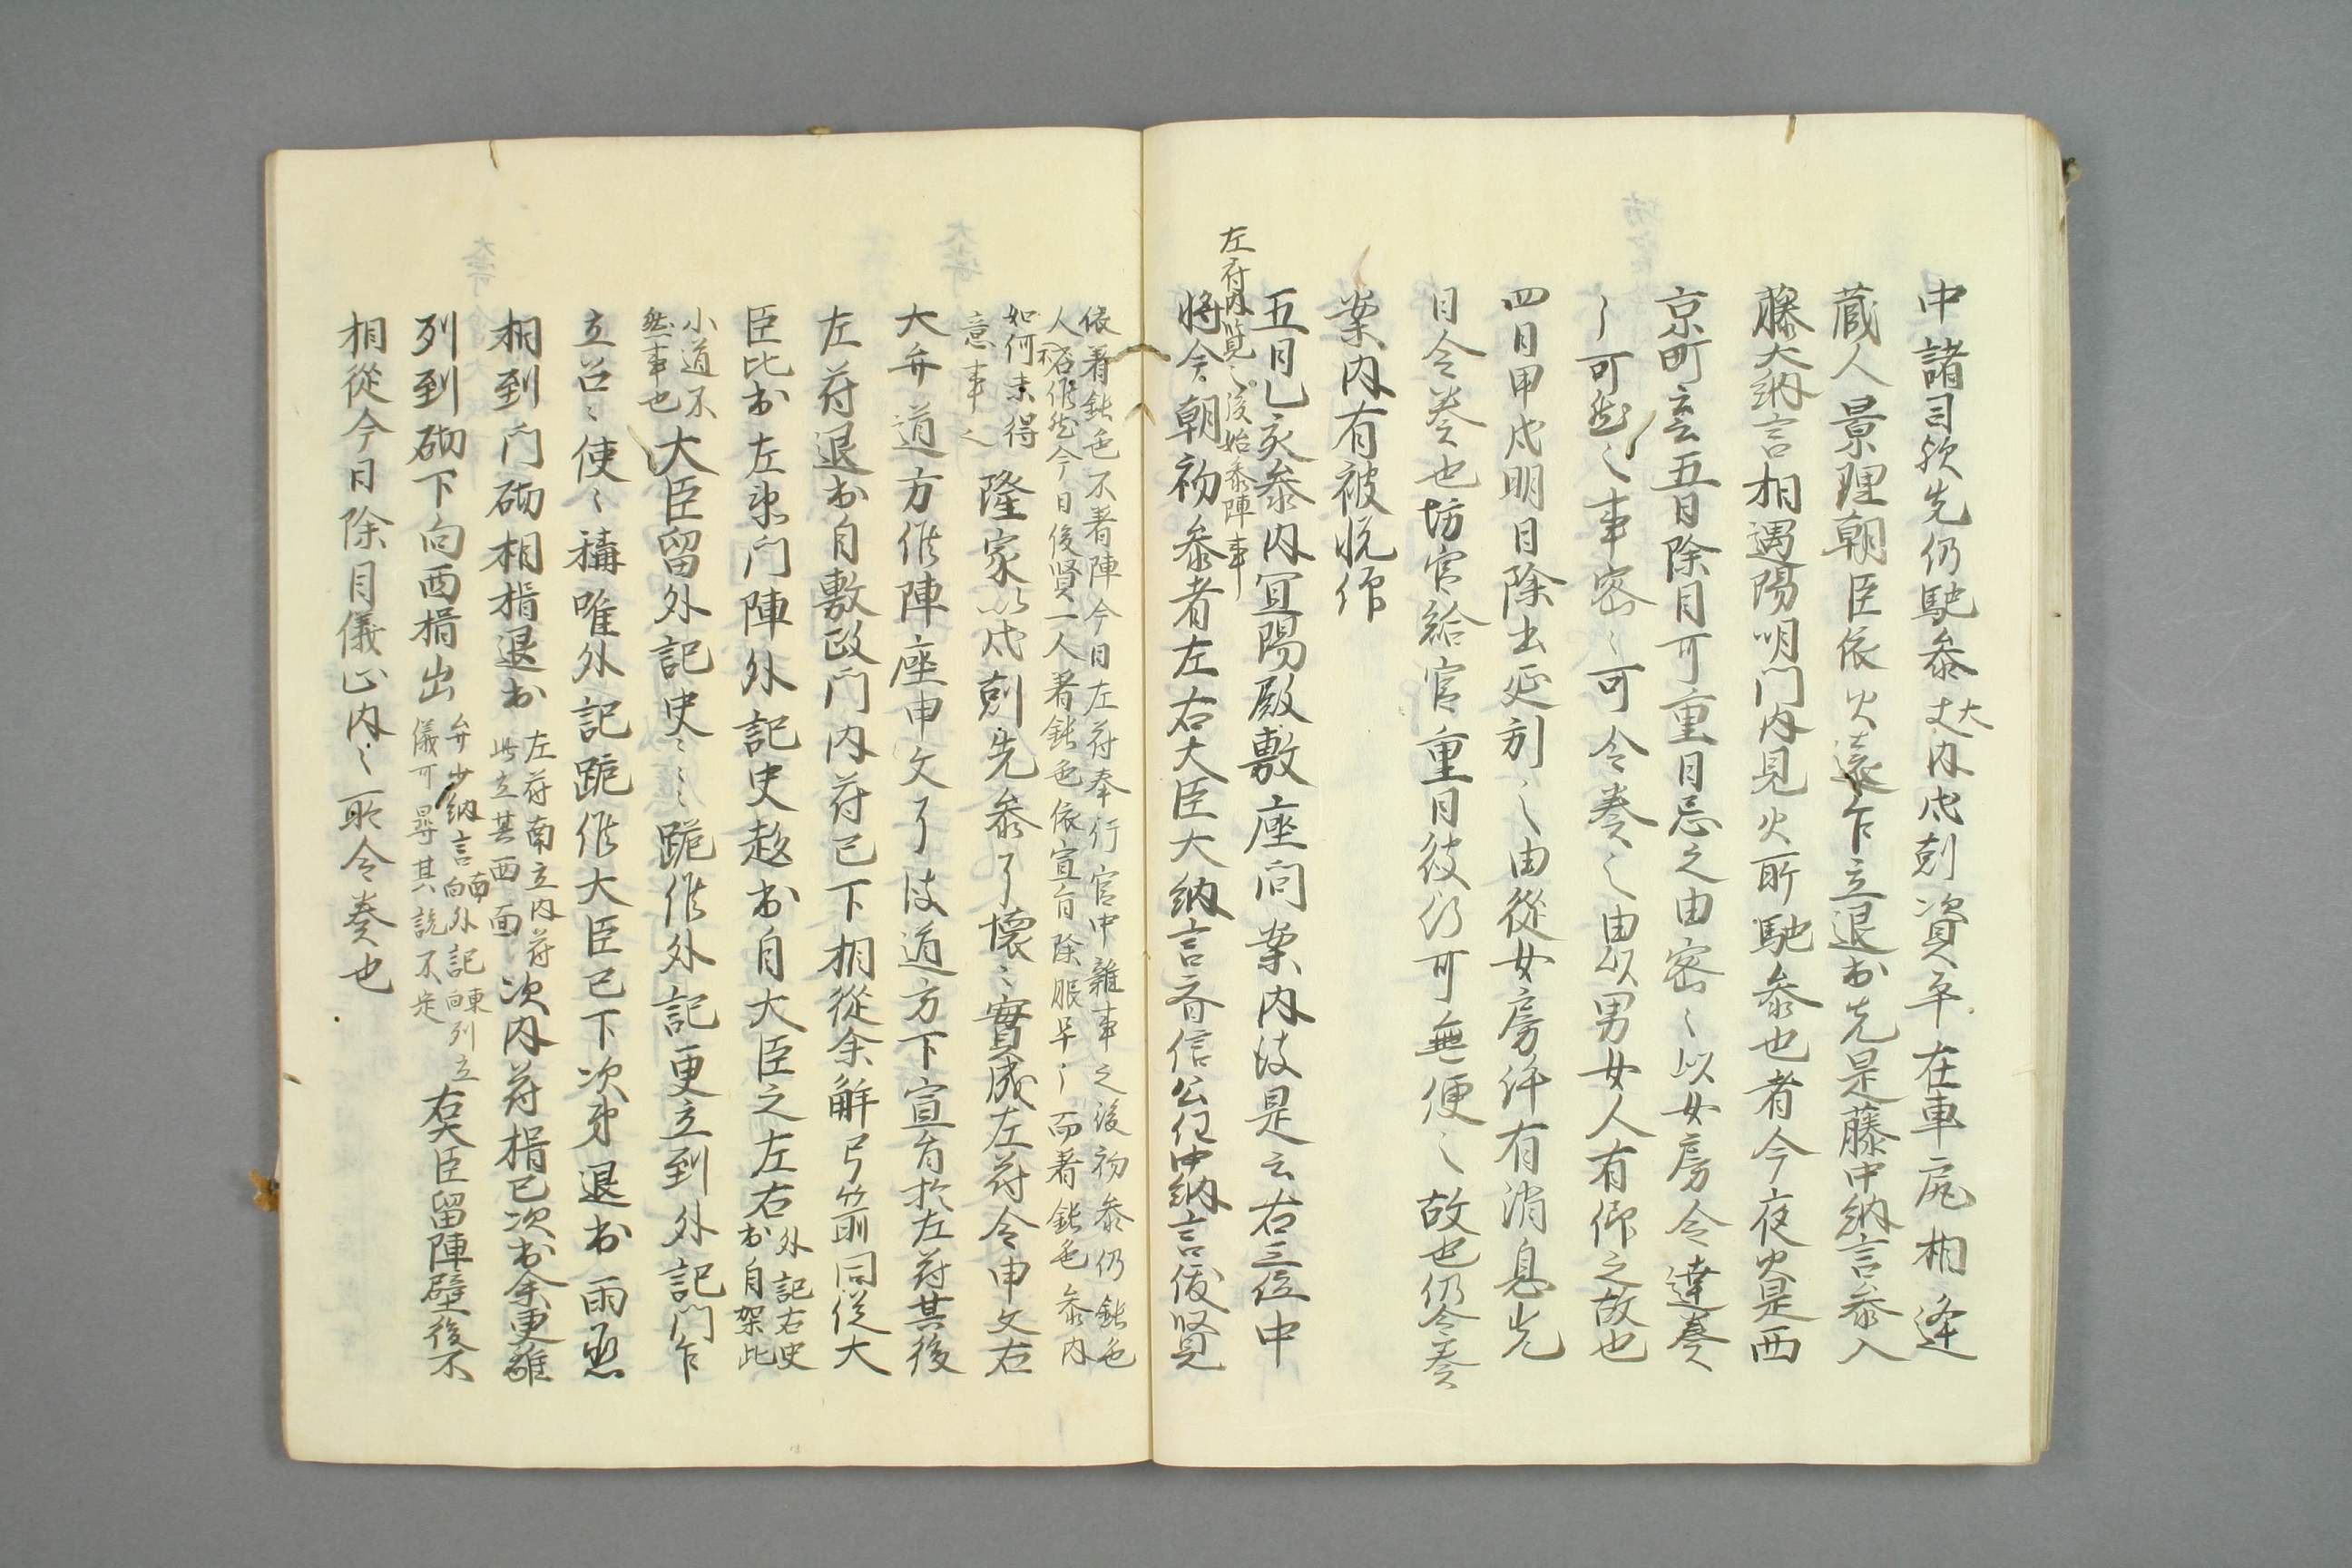 中諸司歟先仍馳参大内戌剋資平在車尻相逢
蔵人景理朝臣依火遠乍立退出先是藤中納言参入
藤大納言相遇陽明門内見火所馳参也者今夜火是西
京町云五日除目可重日忌之由密〻以女房令達奏
了可然之事密〻可令奏之由以男女人有仰之故也
四日甲戌明日除目延引之由従女房許有消息先
日令奏也坊官給官重日彼仍可無便之故也仍令奏
案内有被悦作
左府内覧之後始参陣事
五日乙亥参内宜陽殿敷座問案内後是云右三位中
将今朝初参者左右大臣大納言斉信公任中納言俊賢
依着鈍色不着陣今日左府奉行官中雑事之後初参仍鈍色
人不召候然今日俊賢一人着鈍色依宣旨除服早了而着鈍色参内
如何未得
意事之
隆家以戌剋先参了懐〻實成左府令申文右
大弁道方候陣座申文了後道方下宣旨於左府其後
左府退出自敷政門内府已下相従余解弓箭同従大
臣比出左衛門陣外記史趍出自大臣之左右外記右史
出自架此
小道不
然事也
大臣留外記史〻〻跪候外記更立到外記門乍
立召〻使〻称唯外記跪候大臣已下次第退出雨
相到門砌相揖退出左府南立内府
此立其西面次内府揖已次出余更離
列到砌下向西揖出弁少納言向南外記向東列立
儀可尋其説不定右大臣留陣壁後不
相従今日除目儀止内之所令奏也